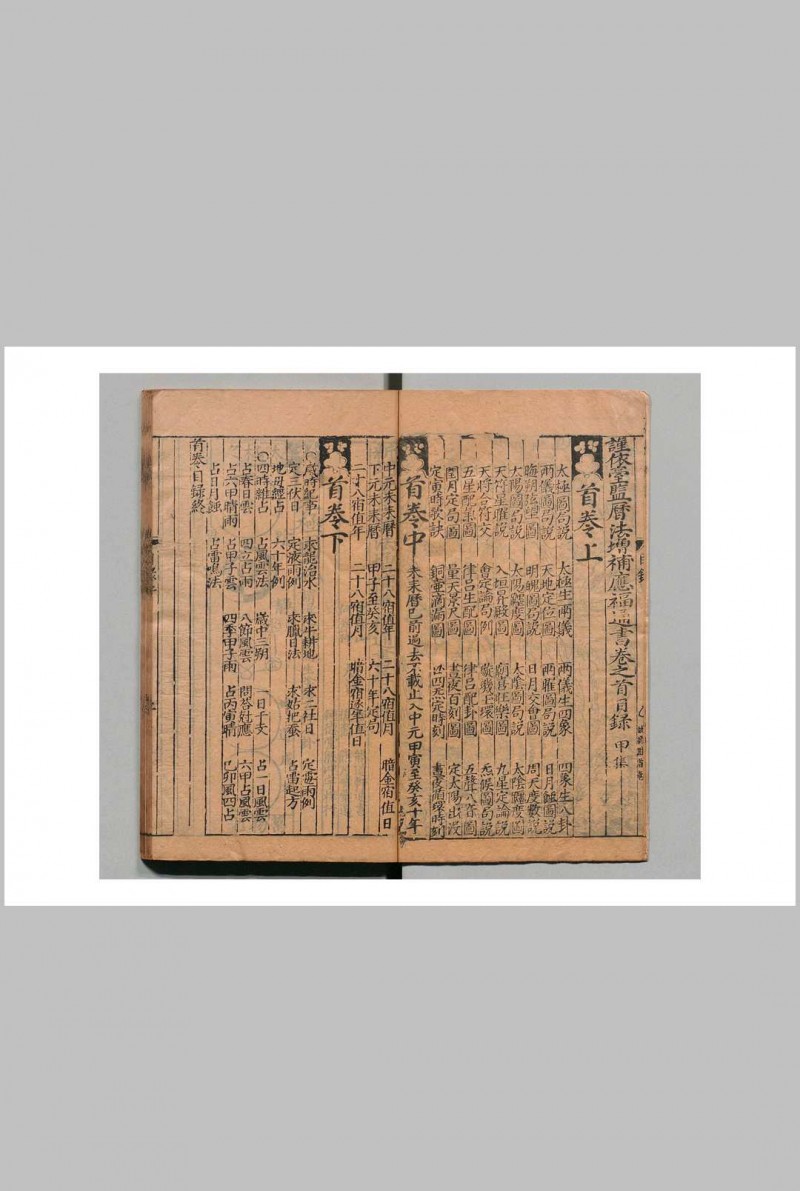 謹依臺監曆法增補應福通書卷之首目錄 甲集
首卷上
太極圖局說 太極生兩儀 兩儀生四象 四象生八卦
兩儀圖局說 天地定位圖 兩曜圖局說 日月蝕圖說
晦朔弦望圖 明魄圖局說 日月交會圖 周天度數說
太陽圖局說 太陽躔度圖 太陰圖局說 太陰躔度圖
天符星曜說 入垣昇殿圖 廟喜旺樂圖 九星定論說
天時合符交 會定論局例 璇璣玉環圖 炁候圖局說
五星配氣圖 律呂生配圖 律呂配卦圖 五聲八音圖
周月定局圖 量天景尺圖 晝夜百刻圖 定太陽出沒
定寅時歌訣 銅壺滴漏圖 定時刻 晝夜循環時刻
首卷中
未來曆已前過去不載止入中元甲寅至癸亥十年
中元未來曆 二十八宿值年 二十八宿值月 暗金宿值日
下元未來曆 甲子至癸亥 六十年定局
二十八宿值年 二十八宿值月 暗金宿逐年值日
首卷下
○歲時記事 求龍治水 求牛耕地 求二社日 定霉雨例
定三伏日 定液雨例 求臘日法 求姑把蚕 占雷起方
地母經占 六十年例
○四時雜占 占風雲法 歲中三朔 一日干支 占一日風雲
占春日雲 四立占雨 八節風雲 問答尅應 六甲占風雲
占六甲晴雨 占甲子雲 四季甲子雨 占丙寅晴 己卯風四占
占日月蝕 占雷鳴法
首卷目錄終